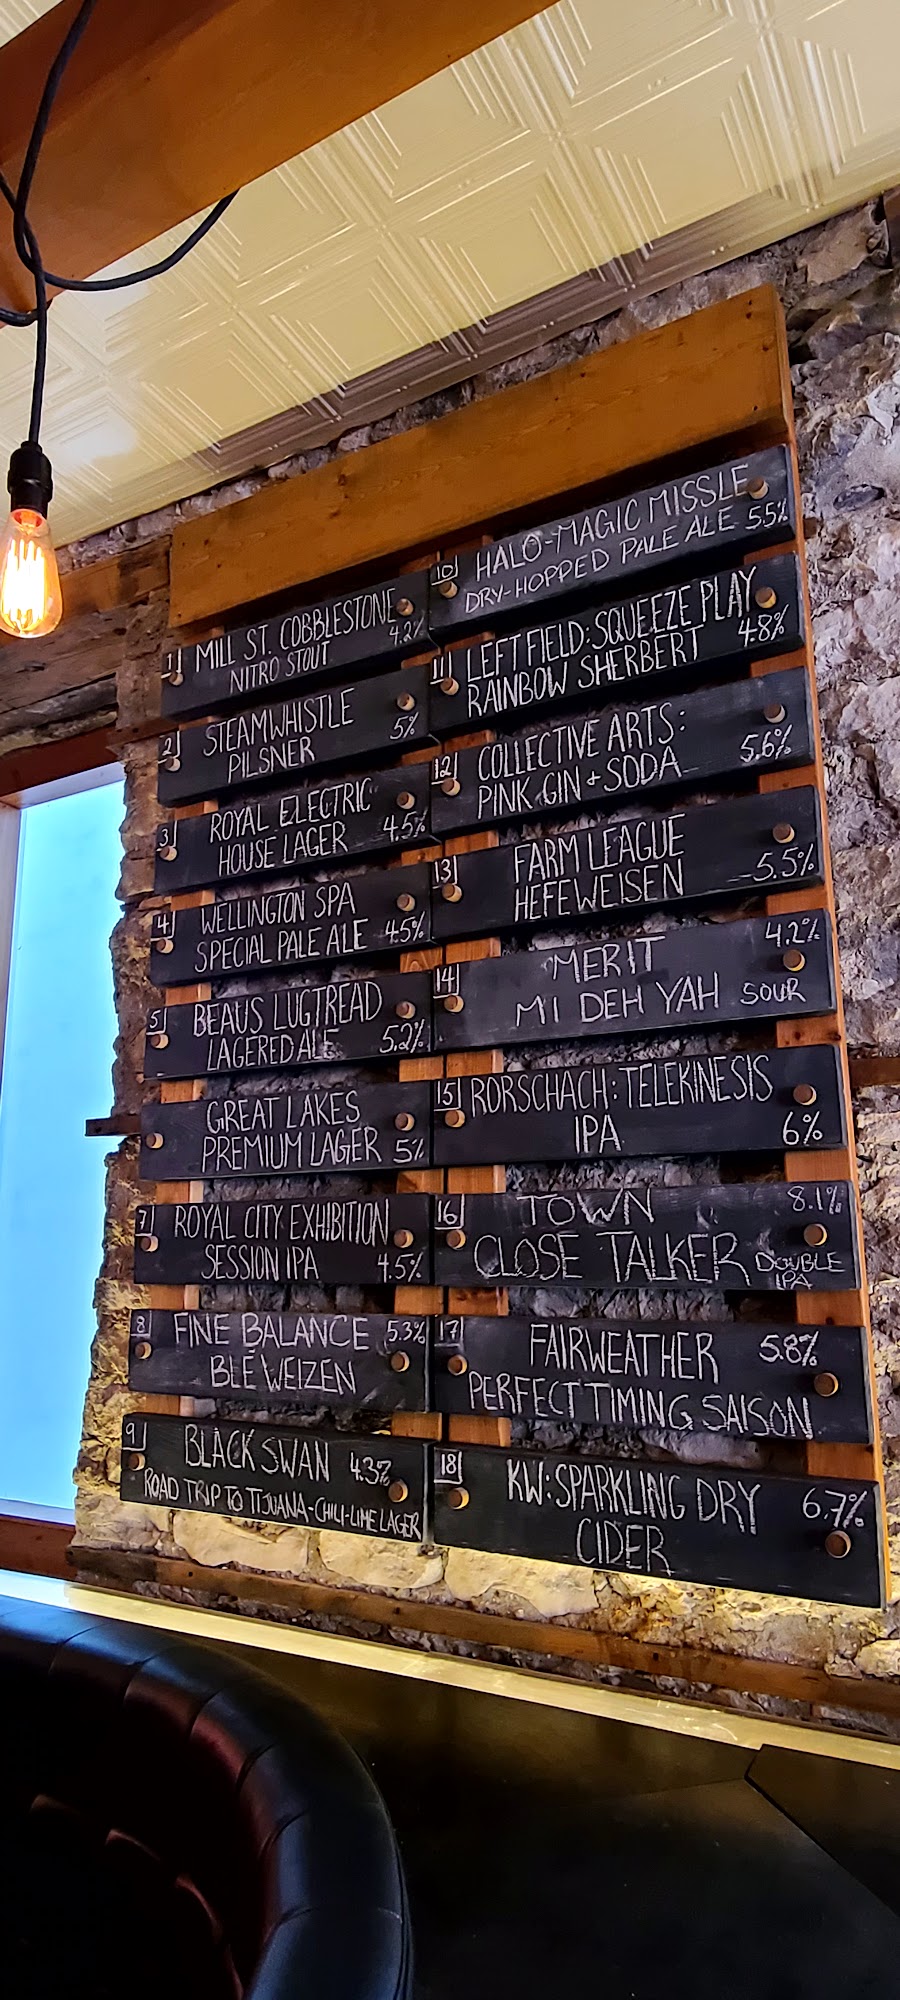 1 MILL ST. COBBLESTONE
NITRO STOUT 4.2%
2 STEAMWHISTLE
PILSNER 5%
3 ROYAL ELECTRIC
HOUSE LAGER 4.5%
4 WELLINGTON SPA
SPECIAL PALE ALE 4.5%
5 BEAUS LUGTREAD
LAGERED ALE 5.2%
GREAT LAKES
PREMIUM LAGER 5%
7 ROYAL CITY EXHIBITION
SESSION IPA 4.5%
8 FINE BALANCE 5.3%
BLÉ WEIZEN
9 BLACK SWAN 4.3%
ROAD TRIP TO TIJUANA-CHILI-LIME LAGER
10 HALO-MAGIC MISSLE
DRY-HOPPED PALE ALE 5.5%
11 LEFT FIELD: SQUEEZE PLAY
RAINBOW SHERBERT 4.8%
12 COLLECTIVE ARTS:
PINK GIN + SODA 5.6%
13 FARM LEAGUE
HEFEWEISEN 5.5%
14 MERIT 4.2%
MI DEH YAH SOUR
15 RORSCHACH: TELEKINESIS
IPA 6%
16 TOWN 8.1%
CLOSE TALKER DOUBLE
IPA
17 FAIRWEATHER 5.8%
PERFECT TIMING SAISON
18 KW: SPARKLING DRY 6.7%
CIDER